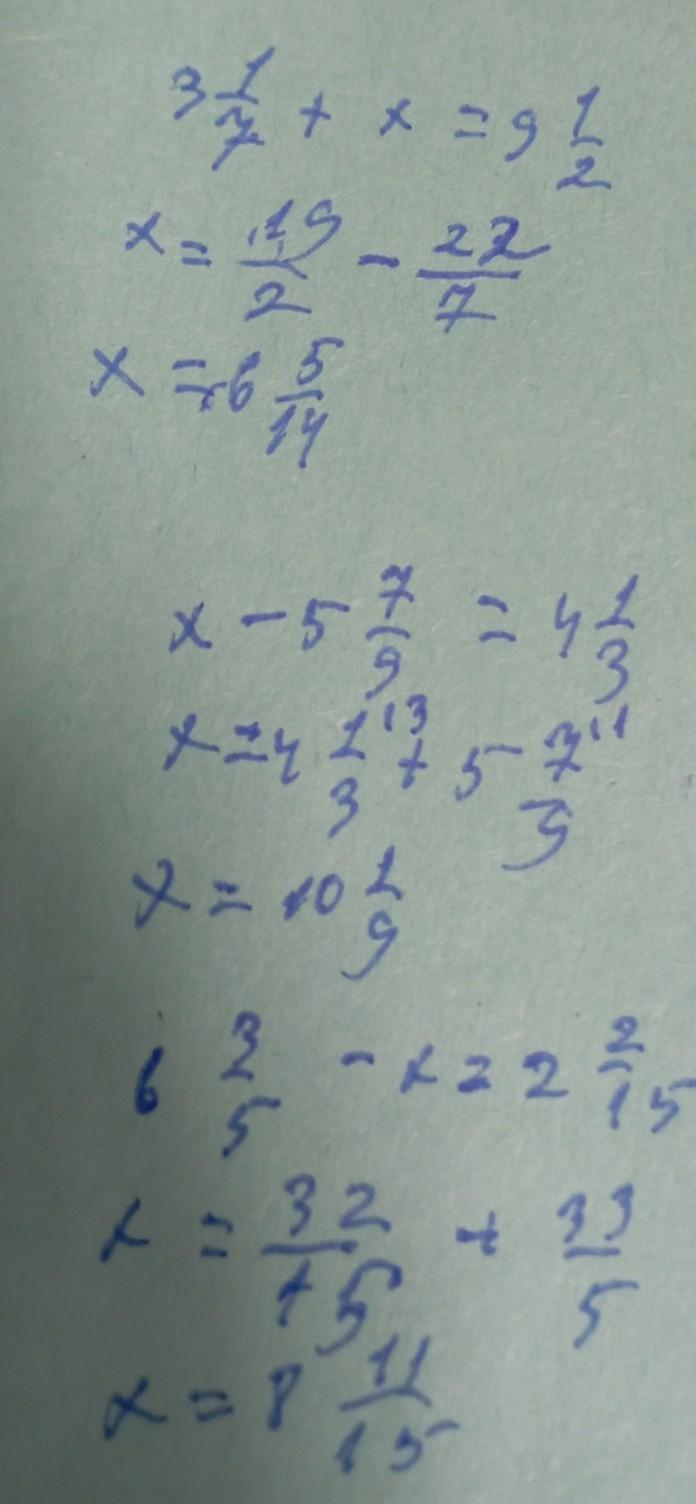 3 1/7 + x = 9 1/2
x = 19/2 - 22/7
x = 6 5/14
x - 5 7/9 = 4 1/3
x = 4 1/3 + 5 7/9
x = 10 1/9
6 3/5 - x = 2 2/15
x = 32/15 + 33/5
x = 8 11/15